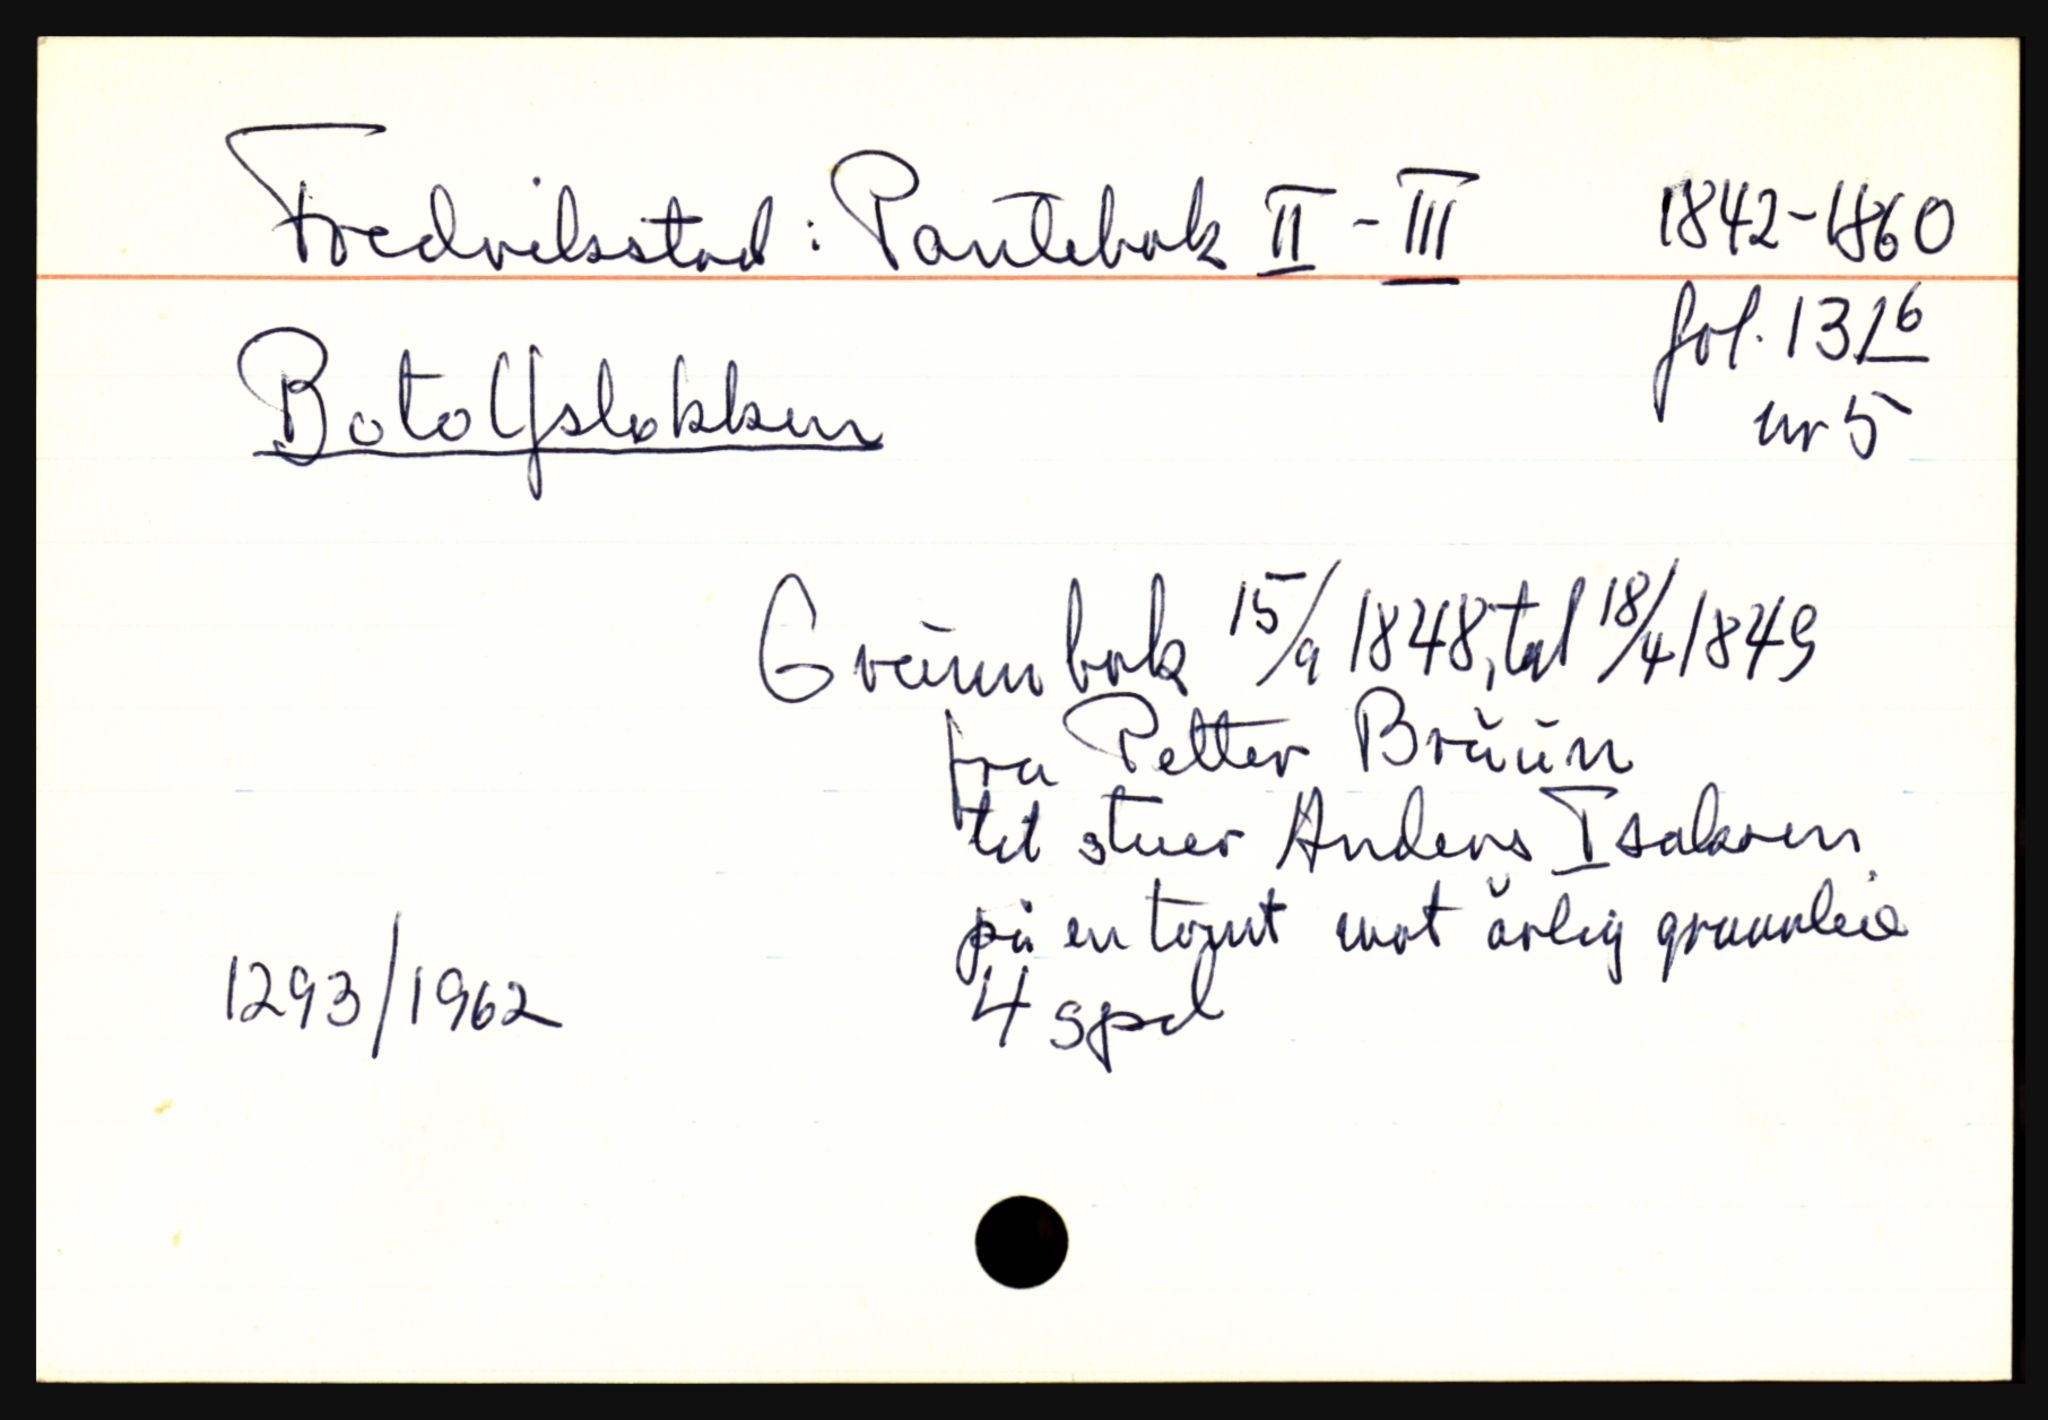 Fredrikstad: Pantebok II - III 1842-1860
fol. 131 b
nr 5
Botolfsløkken
Grunnbok 15/9 1848, tgl 18/4 1849
fra Petter Bruun
til stuer Anders Isaksen
på en tomt mot årlig grunnleie
4 spd
1293/1962